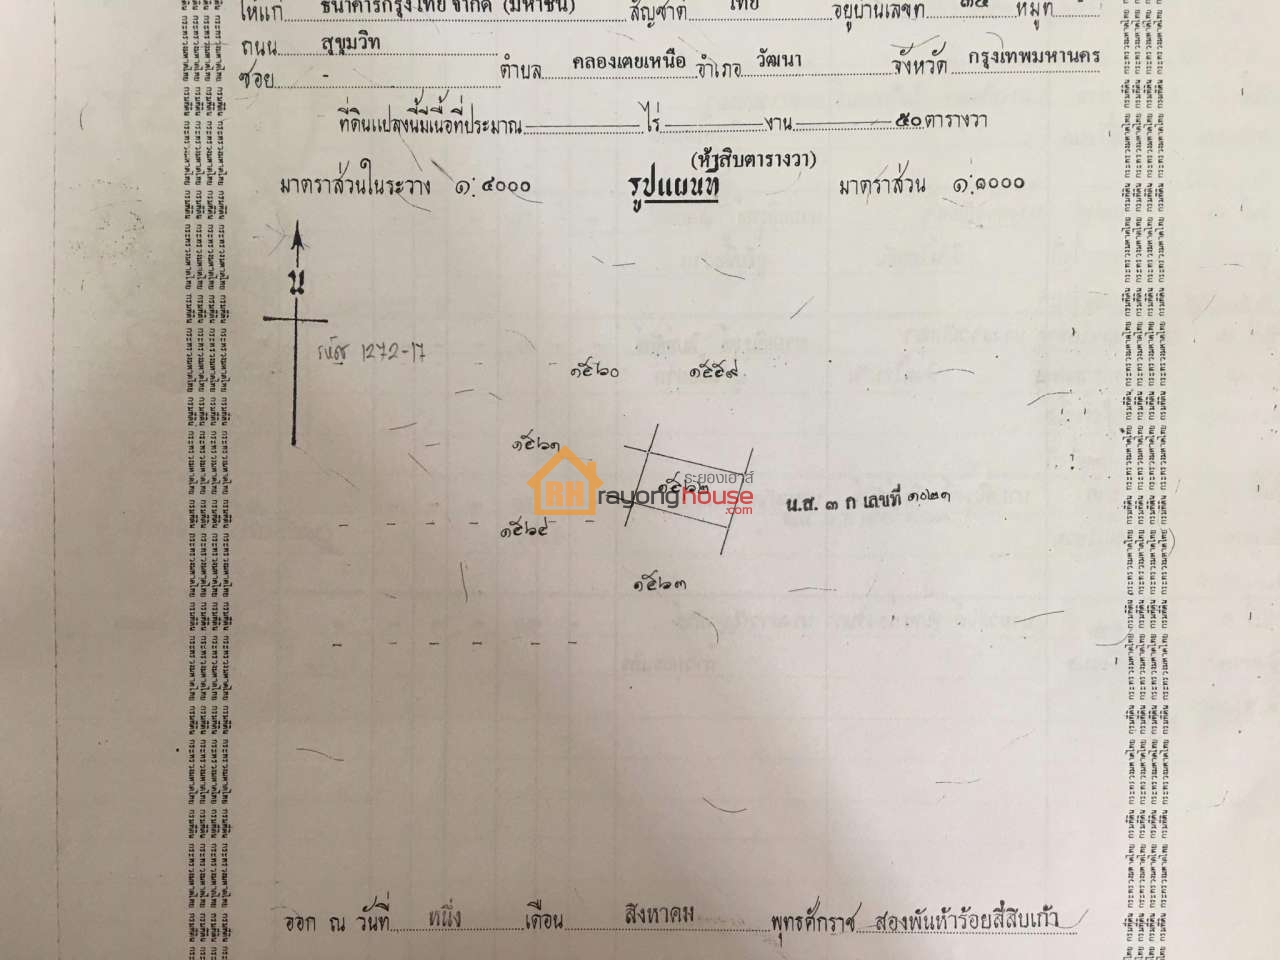 ให้แก่ ธนาคารกรุงไทย จำกัด (มหาชน) สัญชาติ ไทย อยู่บ้านเลขที่ ๓๕ หมู่ที่ -
ถนน สุขุมวิท
ซอย - ตำบล คลองเตยเหนือ อำเภอ วัฒนา จังหวัด กรุงเทพมหานคร
ที่ดินแปลงนี้มีเนื้อที่ประมาณ ไร่ งาน ๕๐ ตารางวา
(ห้าสิบตารางวา)
มาตราส่วนในระวาง ๑:๔๐๐๐ รูปแผนที่ มาตราส่วน ๑:๑๐๐๐
น
รหัส 1272-17
๑๕๖๐ ๑๕๕๙
๑๕๖๑
๑๕๖๒
ระยองเฮาส์
RH rayonghouse
.com
น.ส. ๓ ก เลขที่ ๑๐๒๑
๑๕๖๔
๑๕๖๓
ออก ณ วันที่ หนึ่ง เดือน สิงหาคม พุทธศักราช สองพันห้าร้อยสี่สิบเก้า
กรมที่ดิน กระทรวงมหาดไทย